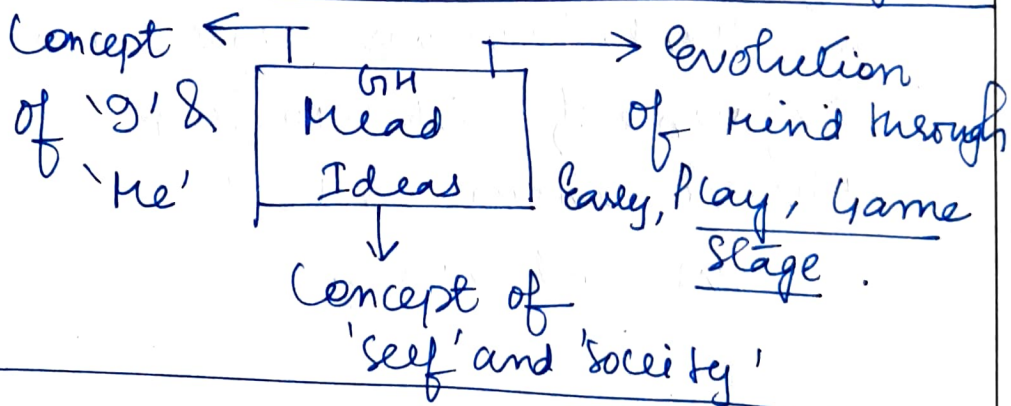 Concept
of 'I' &
'Me'
GH
Mead
Ideas
Evolution
of Mind through
Early, Play, Game
Stage.
Concept of
'self' and 'soceity'